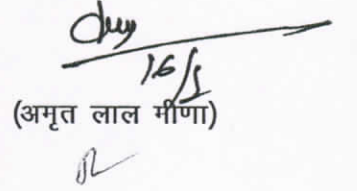 16/1
(अमृत लाल मीणा)